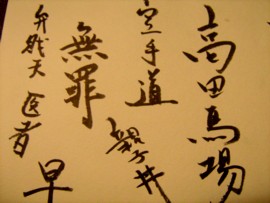 高田馬場
空手道 親子丼
無罪
弁財天 医者 早